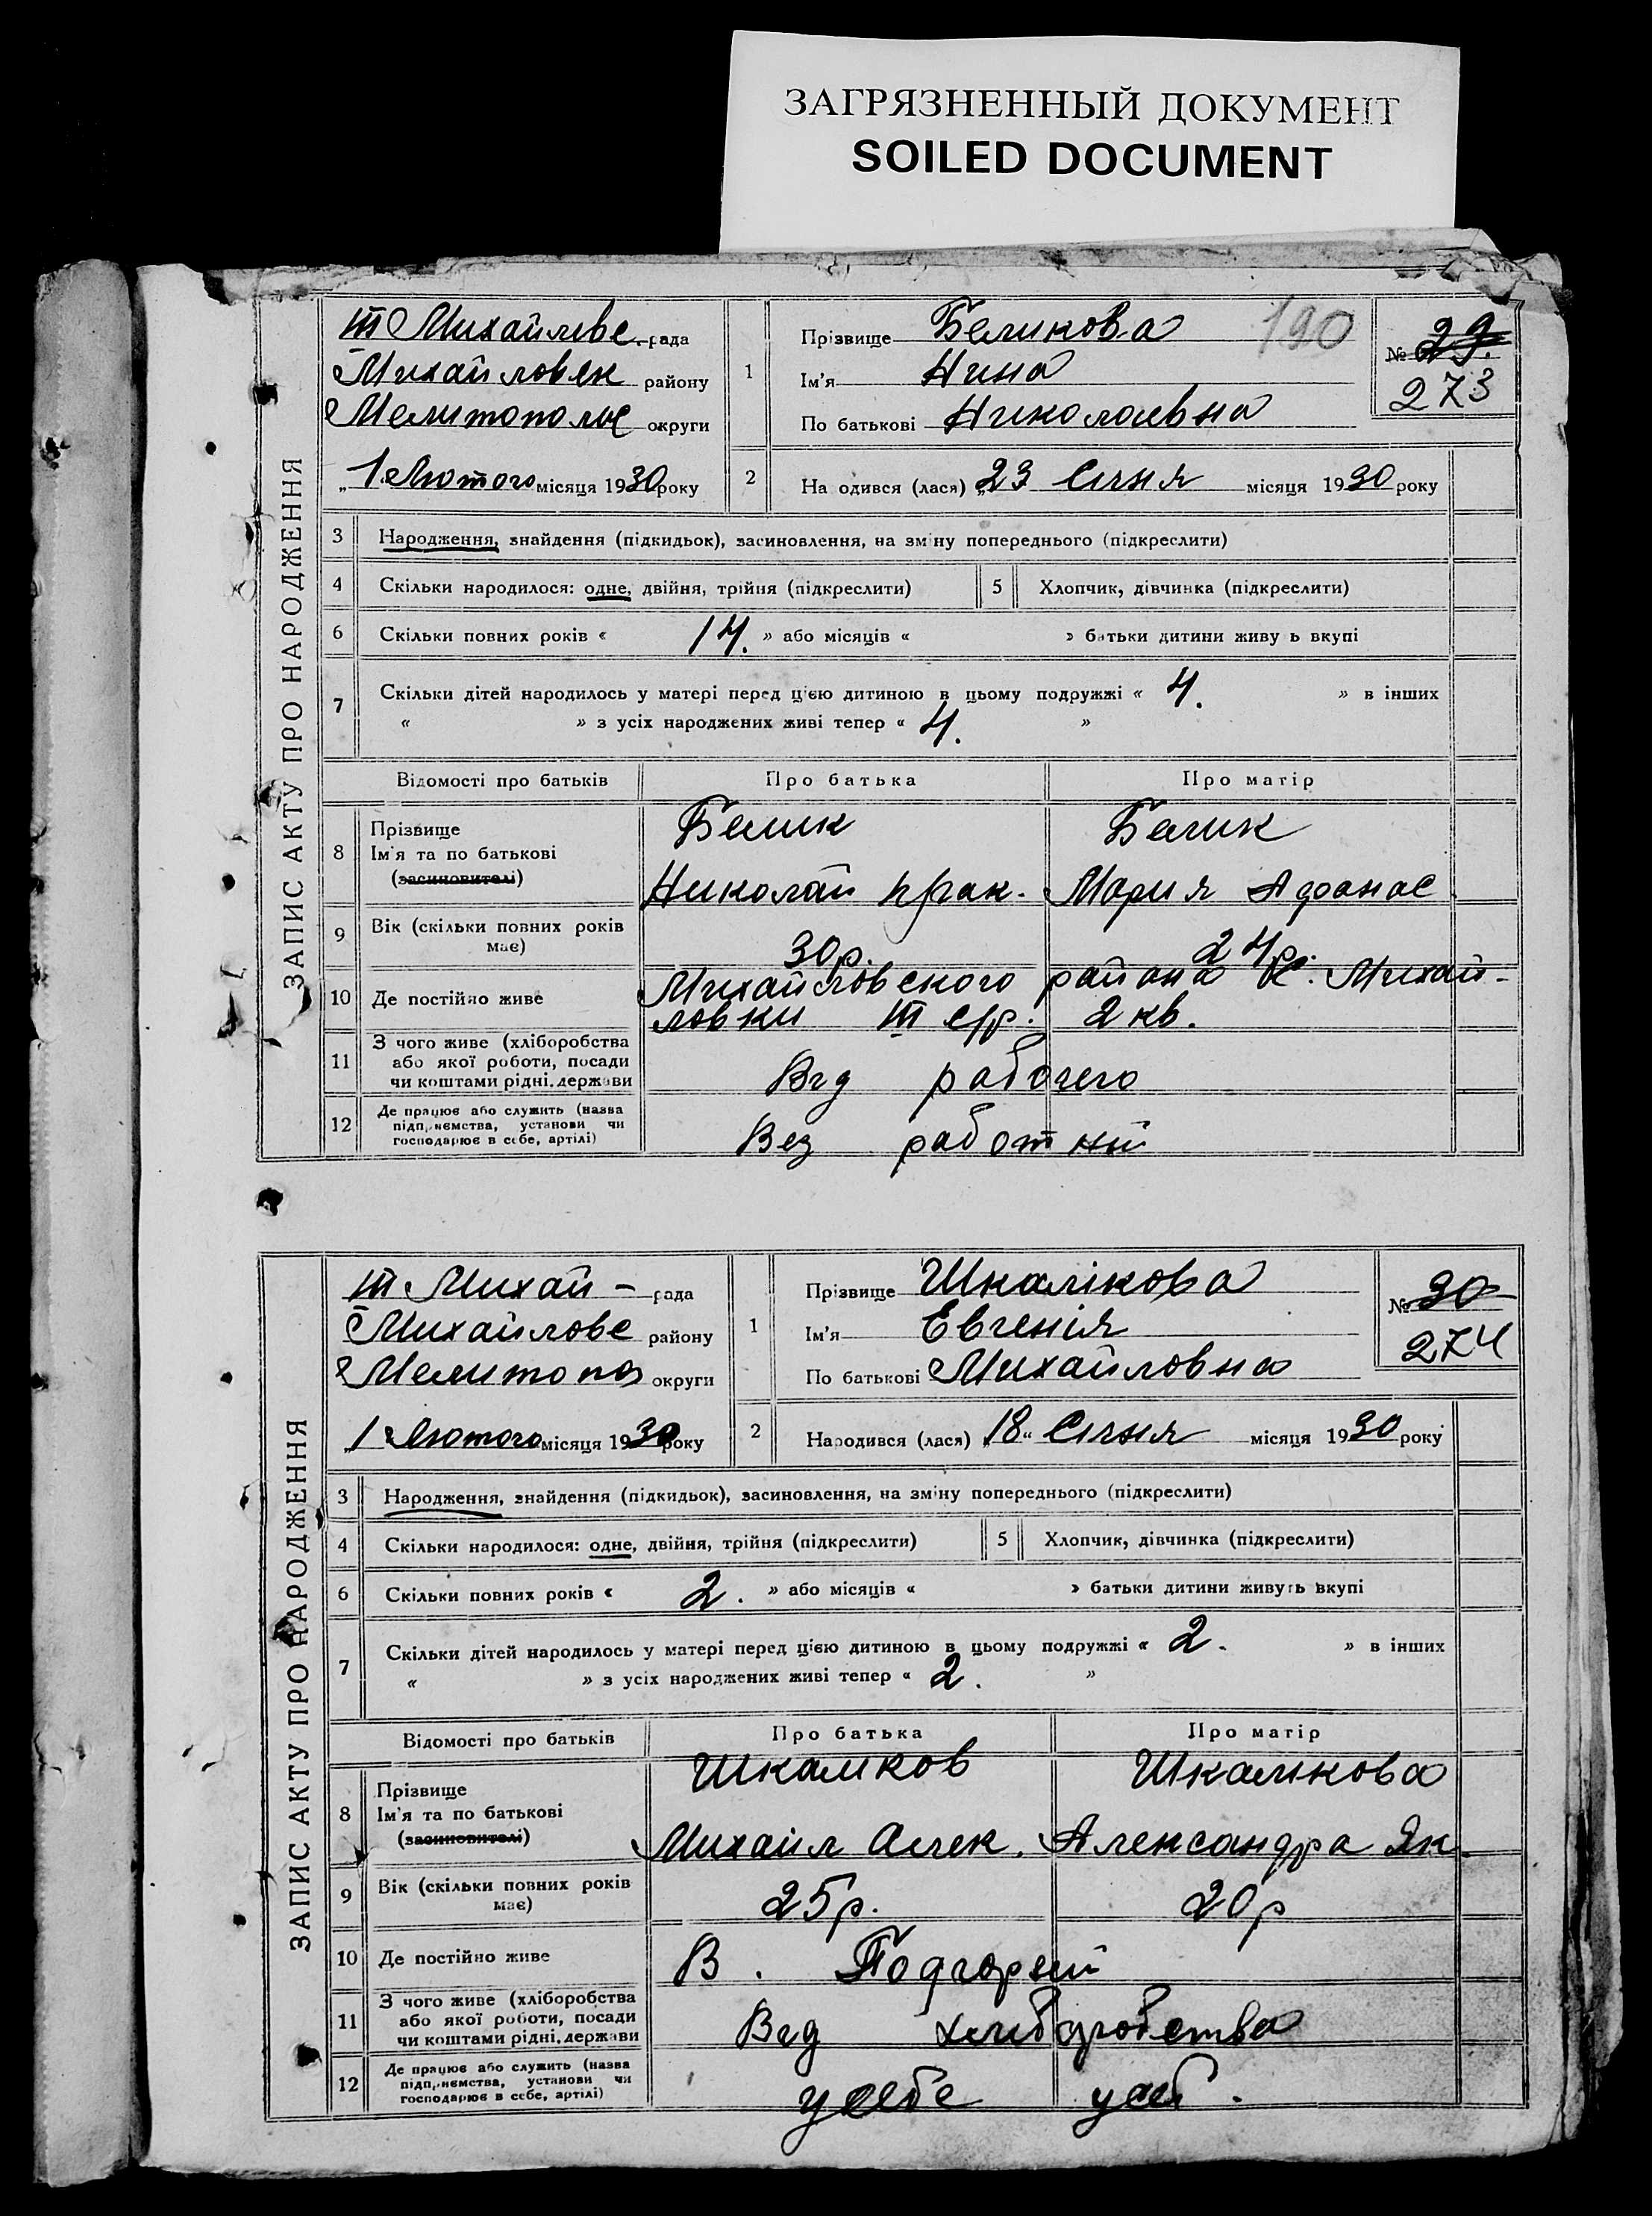 ЗАГРЯЗНЕННЫЙ ДОКУМЕНТ
SOILED DOCUMENT
ЗАПИС АКТУ ПРО НАРОДЖЕННЯ
ІІІ Михайлівс. рада
Михайловск району
Мелитопольс округи
„1 Лютого місяця 1930 року
1
Прізвище Беликова
190
Ім'я Нина
По батькові Николаевна
№ 29.
273
2
На одився (лася) „23 Січня місяця 1930 року
3 Народження, знайдення (підкидьок), засиновлення, на зміну попереднього (підкреслити)
4 Скільки народилося: одне, двійня, трійня (підкреслити) 5 Хлопчик, дівчинка (підкреслити)
6 Скільки повних років « 14. » або місяців « » батьки дитини живу ь вкупі
7 Скільки дітей народилось у матері перед цією дитиною в цьому подружжі « 4. » в інших
« » з усіх народжених живі тепер « 4. »
Відомості про батьків Про батька Про матір
8 Прізвище Белик Белик
Ім'я та по батькові
(засиновителі) Николай Мария Афанас
9 Вік (скільки повних років має) 30р. 24р.
10 Де постійно живе Михайловского района с. Михай-
ловки ІІІ с/р. 2 кв.
11 З чого живе (хліборобства
або якої роботи, посади
чи коштами рідні, держави Від рабочего
12 Де працює або служить (назва
підприємства, установи чи
господарює в себе, артілі) Без работний
ЗАПИС АКТУ ПРО НАРОДЖЕННЯ
ІІІ Михай- рада
Михайловс району
Мелитопол округи
„1 Лютого місяця 1930 року
1
Прізвище Шкалікова
Ім'я Евгенія
По батькові Михайловна
№ 30
274
2
Народився (лася) „18" Січня місяця 1930 року
3 Народження, знайдення (підкидьок), засиновлення, на зміну попереднього (підкреслити)
4 Скільки народилося: одне, двійня, трійня (підкреслити) 5 Хлопчик, дівчинка (підкреслити)
6 Скільки повних років « 2. » або місяців « » батьки дитини живуть вкупі
7 Скільки дітей народилось у матері перед цією дитиною в цьому подружжі « 2. » в інших
« » з усіх народжених живі тепер « 2. »
Відомості про батьків Про батька Про матір
8 Прізвище Шкаліков Шкалікова
Ім'я та по батькові
(засиновителі) Михаил Алек. Александра Як.
9 Вік (скільки повних років має) 25р. 20р
10 Де постійно живе В. Подгорний
11 З чого живе (хліборобства
або якої роботи, посади
чи коштами рідні, держави Від хліборобства
12 Де працює або служить (назва
підприємства, установи чи
господарює в себе, артілі) у себе у себ.